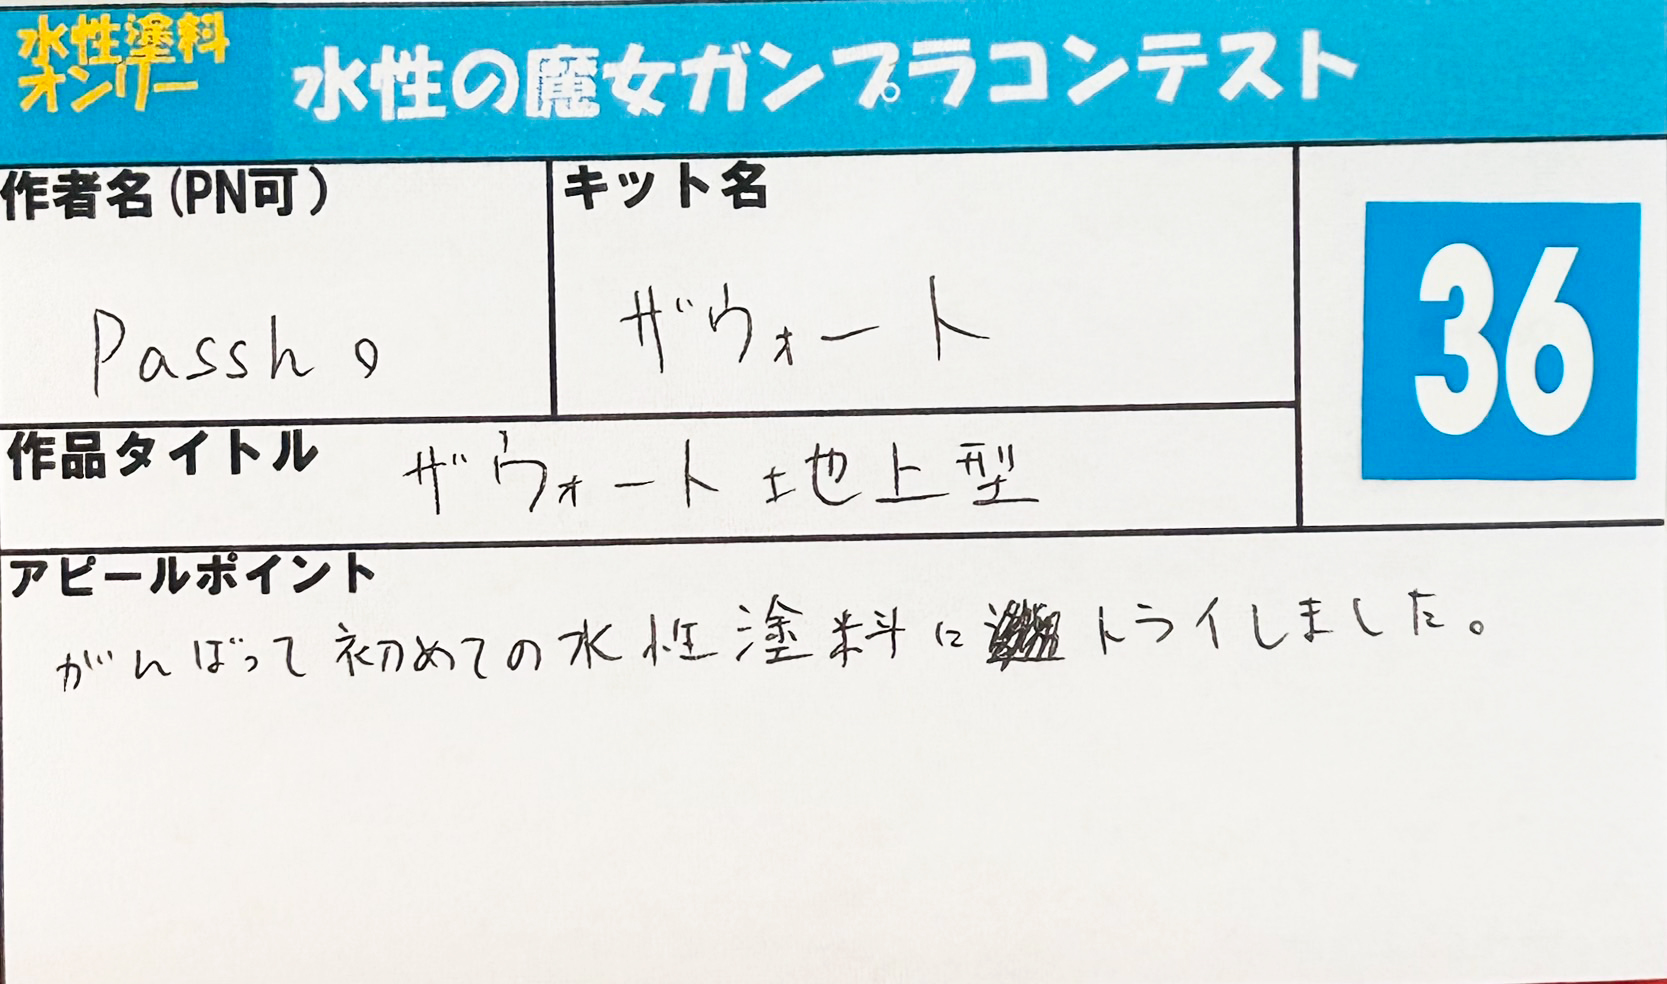 水性塗料
オンリー
水性の魔女ガンプラコンテスト
作者名(PN可)
Passho
キット名
ザウォート
36
作品タイトル
ザウォート地上型
アピールポイント
がんばって初めての水性塗料にトライしました。